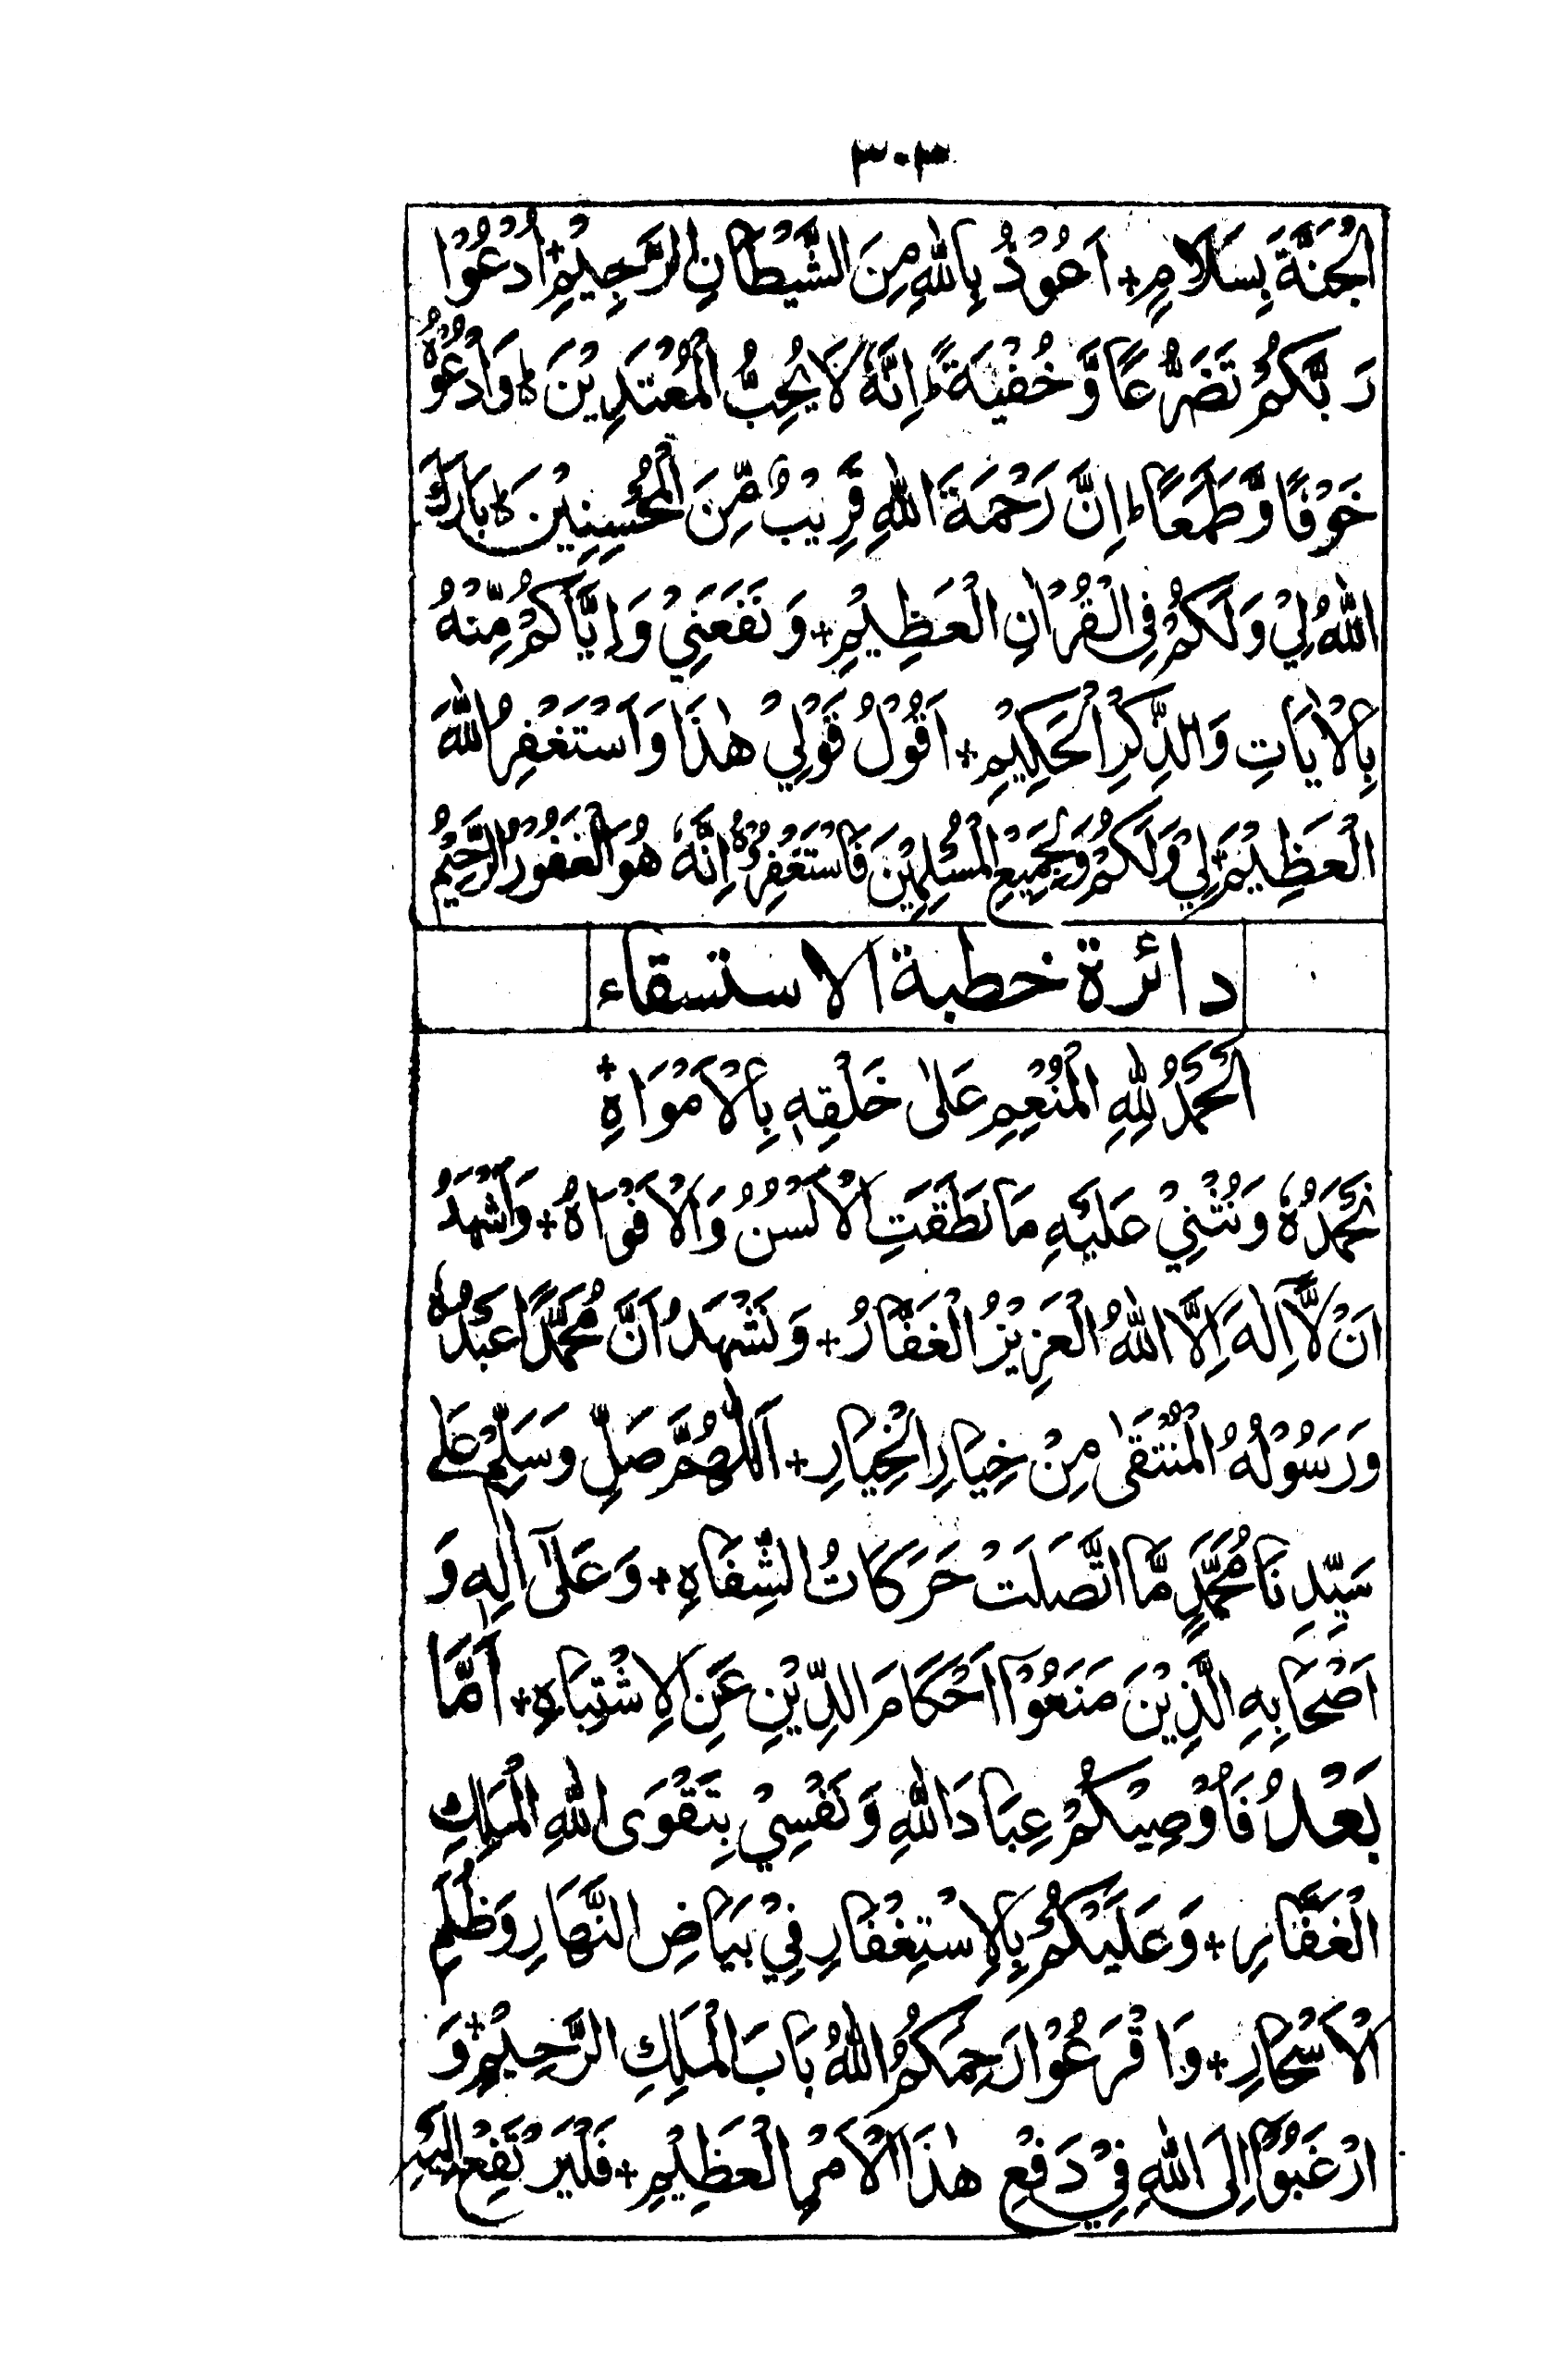 ٣٠٣
الْجَنَّةَ بِسَلَامٍ + اَعُوْذُ بِاللّٰهِ مِنَ الشَّيْطَانِ الرَّجِيْمِ + اُدْعُوْا
رَبَّكُمْ تَضَرُّعًا وَّخُفْيَةً ط اِنَّهٗ لَا يُحِبُّ الْمُعْتَدِيْنَ ه وَادْعُوْهُ
خَوْفًا وَّطَمَعًا ط اِنَّ رَحْمَةَ اللّٰهِ قَرِيْبٌ مِّنَ الْمُحْسِنِيْنَ ه بَارَكَ
اللّٰهُ لِيْ وَلَكُمْ فِي الْقُرْاٰنِ الْعَظِيْمِ + وَنَفَعَنِيْ وَاِيَّاكُمْ مِّنْهُ
بِالْاٰيَاتِ وَالذِّكْرِ الْحَكِيْمِ + اَقُوْلُ قَوْلِيْ هٰذَا وَاَسْتَغْفِرُ اللّٰهَ
الْعَظِيْمَ لِيْ وَلَكُمْ وَلِجَمِيْعِ الْمُسْلِمِيْنَ فَاسْتَغْفِرُوْهُ اِنَّهٗ هُوَ الْغَفُوْرُ الرَّحِيْمُ
دائرة خطبة الاستسقاء
اَلْحَمْدُ لِلّٰهِ الْمُنْعِمِ عَلٰى خَلْقِهٖ بِالْاَمْوَاهِ +
نَحْمَدُهٗ وَنُثْنِيْ عَلَيْهِ مَا نَطَقَتِ الْاَلْسُنُ وَالْاَفْوَاهُ + وَاَشْهَدُ
اَنْ لَّا اِلٰهَ اِلَّا اللّٰهُ الْعَزِيْزُ الْغَفَّارُ + وَنَشْهَدُ اَنَّ مُحَمَّدًا عَبْدُهٗ
وَرَسُوْلُهُ الْمُنْتَقٰى مِنْ خِيَارِ الْخِيَارِ + اَللّٰهُمَّ صَلِّ وَسَلِّمْ عَلٰى
سَيِّدِنَا مُحَمَّدٍ مَّا اتَّصَلَتْ حَرَكَاتُ الشِّفَاهِ + وَعَلٰٓى اٰلِهٖ وَ
اَصْحَابِهِ الَّذِيْنَ مَنَعُوْٓا اَحْكَامَ الدِّيْنِ عَنِ الْاِشْتِبَاهِ + اَمَّا
بَعْدُ فَاُوْصِيْكُمْ عِبَادَ اللّٰهِ وَنَفْسِيْ بِتَقْوَى اللّٰهِ الْمَلِكِ
الْغَفَّارِ + وَعَلَيْكُمْ بِالْاِسْتِغْفَارِ فِيْ بَيَاضِ النَّهَارِ وَظُلَمِ
الْاَسْحَارِ + وَاقْرَعُوْا رَحِمَكُمُ اللّٰهُ بَابَ الْمَلِكِ الرَّحِيْمِ + وَ
ارْغَبُوْٓا اِلَى اللّٰهِ فِيْ دَفْعِ هٰذَا الْاَمْرِ الْعَظِيْمِ + فَلْيَرْتَفِعْ